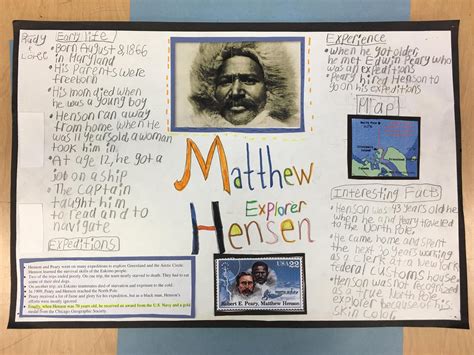 Early life
• Born August 8, 1866
in Maryland
• His Parents were
freeborn
• His mom died when
he was a young boy
• Henson ran away
from home when he
was 11 years old, a woman
took him in
• At age 12, he got a
job on a ship
• The Captain
taught him
to read and to
navigate
Expeditions
Henson and Peary went on many expeditions to explore Greenland and the Arctic Circle.
Henson learned the survival skills of the Eskimo people.
Two of the trips ended poorly. On one trip, the team nearly starved to death. They had to eat
some of their sled dogs.
On another trip, six Eskimo teammates died of starvation and exposure to the cold.
In 1909, Peary and Henson reached the North Pole.
Peary received a lot of fame and glory for his expedition, but as a black man, Henson's
efforts were mostly ignored.
Finally, when Henson was 70 years old, he received an award from the U.S. Navy and a gold
medal from the Chicago Geographic Society.
Matthew
Explorer
Hensen
22
USA
Robert E. Peary, Matthew Henson
Experience
• When he got older,
he met Edwin Peary who
was an expeditions
• Peary hired Henson to
go on his expeditions
Map
Interesting Facts
• Henson was 43 years old
when he and Peary traveled
to the North Pole.
• He came home and spent
the next 30 years working
as a clerk at a
federal customs house
• Henson was
true North Pole
explorer because of his
skin color.